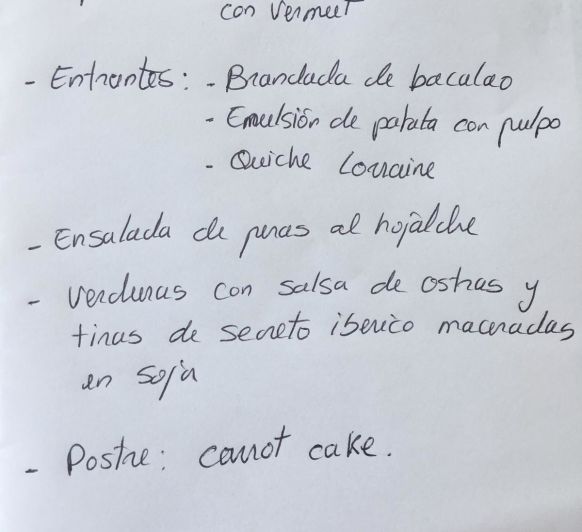 con Vermut
- Entrantes: - Brandada de bacalao
- Emulsión de patata con pulpo
- Quiche Lorraine
- Ensalada de peras al hojaldre
- Verduras con salsa de ostras y
tiras de secreto iberico maceradas
en soja
- Postre: carrot cake.